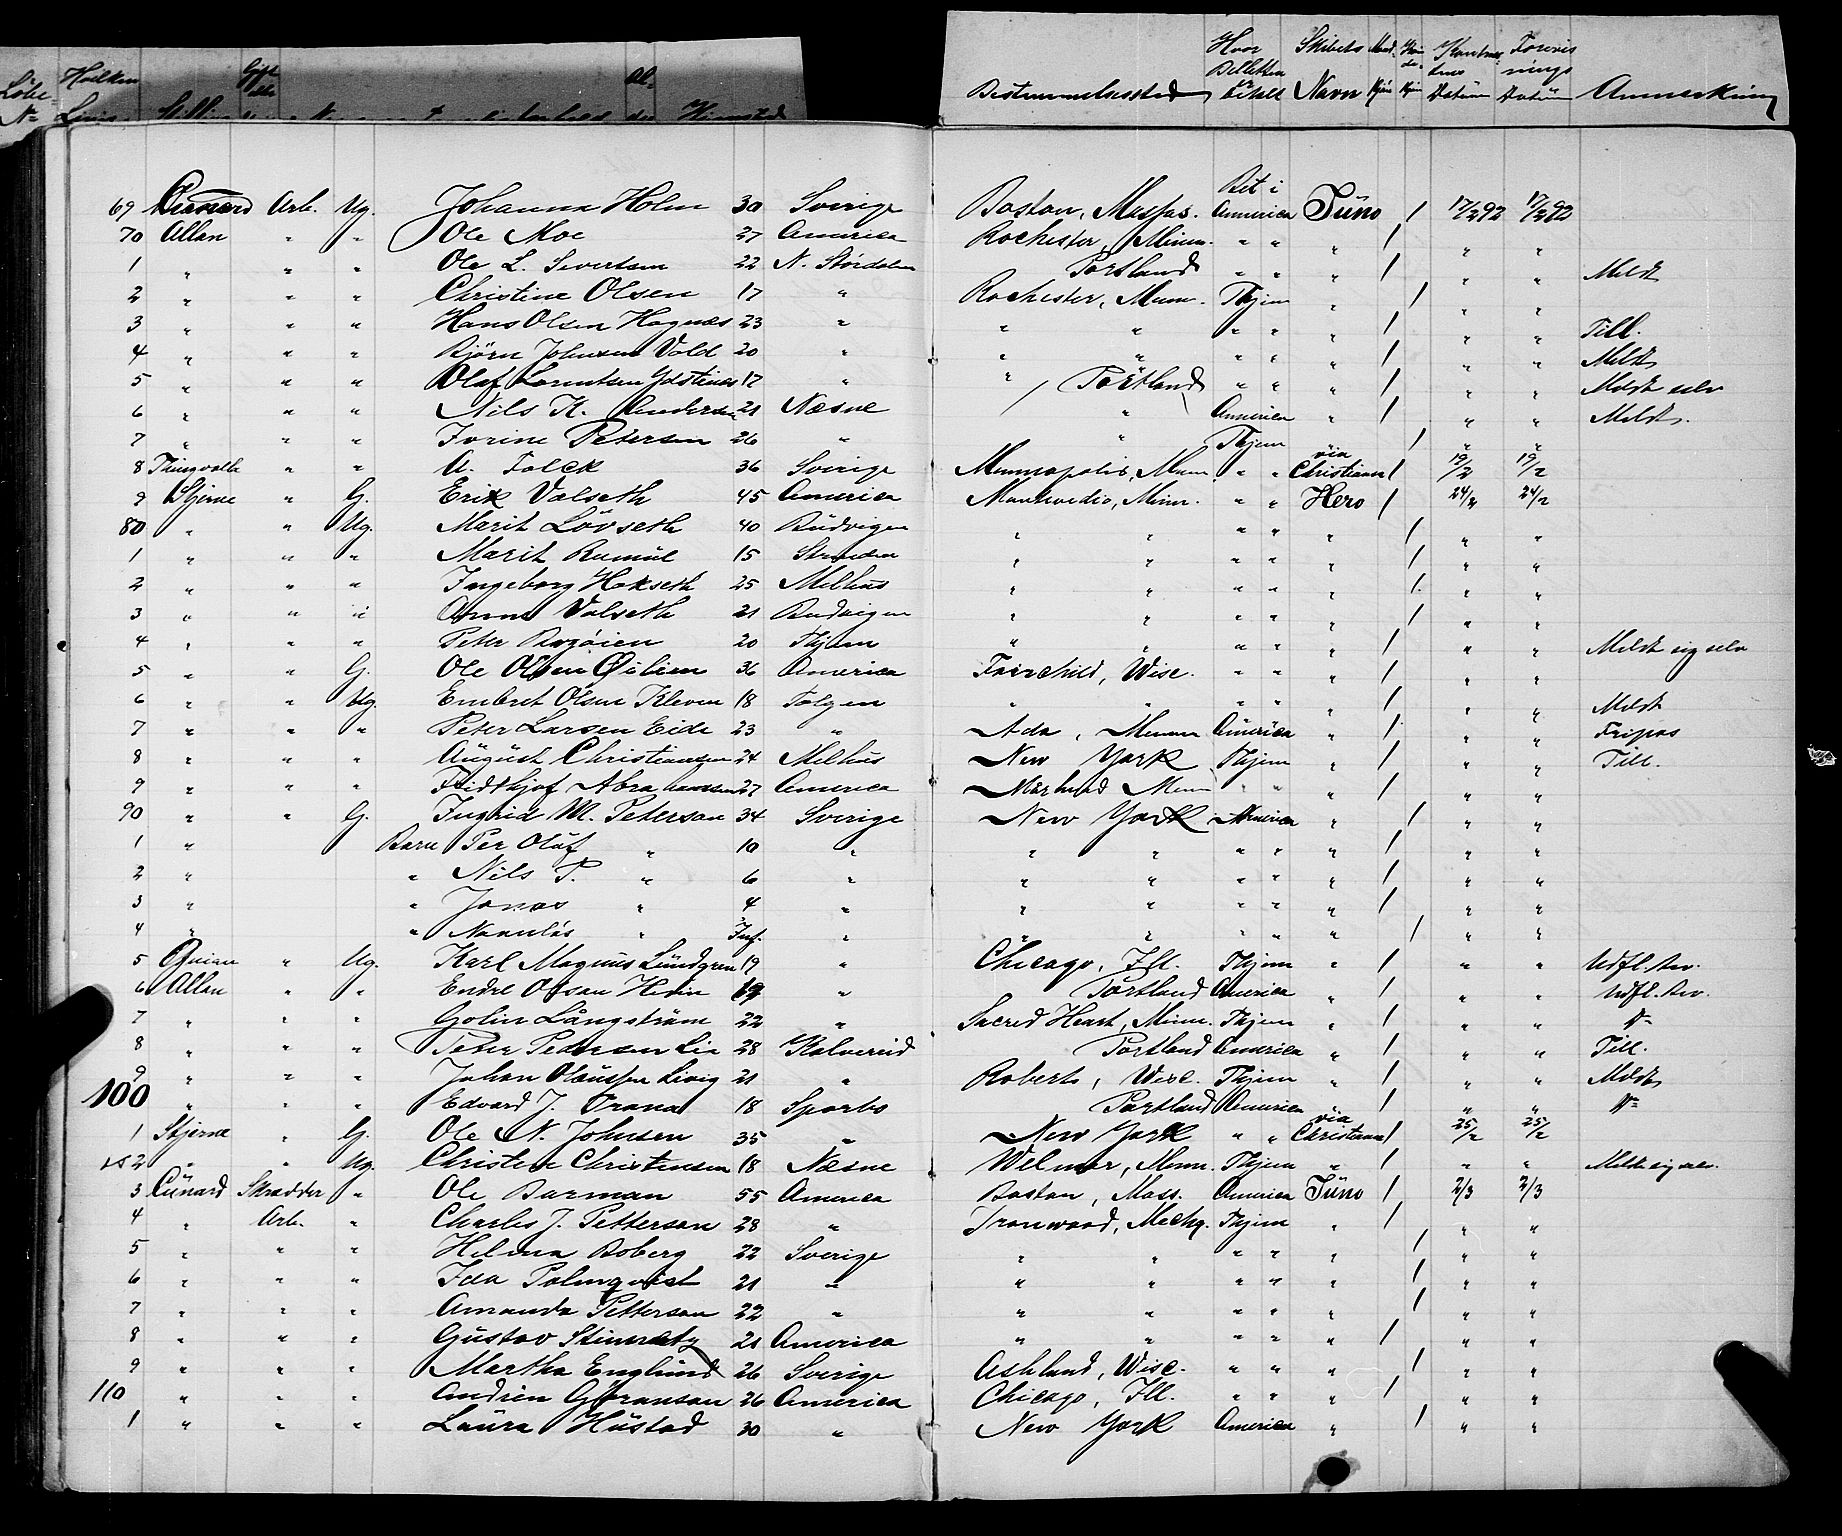 Løbe- No Hvilken Linie Stilling Gift eller Navn Al- der Hjemsted Bestemmelsessted Hvor Billetten er betalt Skibets Navn Mand- kjøn Kvin- de- kjøn Datum Forevis nings Datum Anmerkning
69 Cunard Arb. Ug. Johanna Holm 30 Sverige Boston, Massas. Bet i America Juno 1 17/2 92 17/2 92
70 Allan " " Ole Moe 27 America Rochester, Minn. " " " 1 " "
1 " " " Ole L. Sivertsen 22 N. Stördalen Portland " " " 1 " " Meldt
2 " " " Christine Olsen 17 " Rochester, Minn. Thjem " 1 " "
3 " " " Hans Olsen Hognes 23 " " " " " " 1 " " Till.
4 " " " Björn Johnsen Vold 20 " " " " " " 1 " " Meldt
5 " " " Olaf Lorentsen Ydstines 17 " " Portland " " " 1 " " Meldt selv
6 " " " Nils K. Andersen 21 Næsne " America " 1 " " Meldt.
7 " " " Jorine Petersen 26 " " Thjem 1 " "
8 Thingvalla " " A. Falck 36 Sverige Minneapolis, Minn " " via Christiania 1 19/2 19/2
9 Stjerne " G. Erik Valseth 45 America Montevedio, Minn. " " Hero 1 24/2 24/2
80 " " Ug. Marit Lövseth 40 Budvigen " " " " " 1 " "
1 " " " Marit Rumül 15 Strinden " " " " " 1 " "
2 " " " Ingeborg Hokseth 25 Melhus " " " " " 1 " "
3 " " " Anne Valseth 21 Budvigen " " " " " 1 " "
4 " " " Peter Bogöien 20 Thjem " " " " " 1 " " Meldt sig selv
5 " " G. Ole Olsen Öslien 36 America Fairchild, Wisc. " " " 1 " "
6 " " Ug. Embret Olsen Kleven 18 Tolgen " " " " " 1 " " Meldt
7 " " " Peter Larsen Eide 23 " Ada, Minn America " 1 " " Fripas
8 " " " August Christiansen 24 Melhus New York Thjem " 1 " " Till.
9 " " " Fridthjof Abrahamsen 27 America Minn " " " 1 " "
90 " " G. Ingrid M. Peterson 34 Sverige New York America " 1 " "
1 " Barn Per Olaf " 10 " " " " " " 1 " "
2 " " Nils P. " 6 " " " " " " 1 " "
3 " " Jonas " 4 " " " " " " 1 " "
4 " " Navnlös " Inf. " " " " " " 1 " "
5 Guion " Ug. Karl Magnus Lundgren 19 " Chicago, Ill. Thjem " 1 " " Udfl. Att.
6 Allan " " Endre Olsson Hedin 19 " Portland America " 1 " " Udfl. Att.
7 " " " Golin Långström 22 " Sacred Heart, Minn. Thjem " 1 " " "
8 " " " Peter Pedersen Lie 28 Kolvereid Portland America " 1 " " Till.
9 " " " Johan Olaussen Livig 21 " Roberts, Wisc. Thjem " 1 " " Meldt
100 " " " Edvard J. Trana 18 Sparbo Portland America 1 " " "
1 Stjerne " G. Ole N. Johnsen 35 " New York " " via Christiania 1 25/2 25/2
102 " " Ug. Christen Christensen 18 Næsne Wilmar, Minn. Thjem " 1 " " Meldt sig selv.
3 Cunard Skrædder " Ole Barman 55 America Boston, Mass. America Juno 1 2/3 2/3
4 " Arb. " Charles J. Petterson 28 " Ironwood, Mechg. Thjem " 1 " "
5 " " " Helma Boberg 22 Sverige " " " " " 1 " "
6 " " " Ida Palmqvist 21 " " " " " " 1 " "
7 " " " Amanda Petterson 22 " " " " " " 1 " "
8 " " " Gustav 21 America " " " " " 1 " "
9 " " " Martha Englund 26 Sverige Ashland, Wisc. " " " 1 " "
110 " " " Andrien Göranson 26 America Chicago, Ill. " " " 1 " "
1 " " " Laura Hustad 30 " New York America " 1 " "